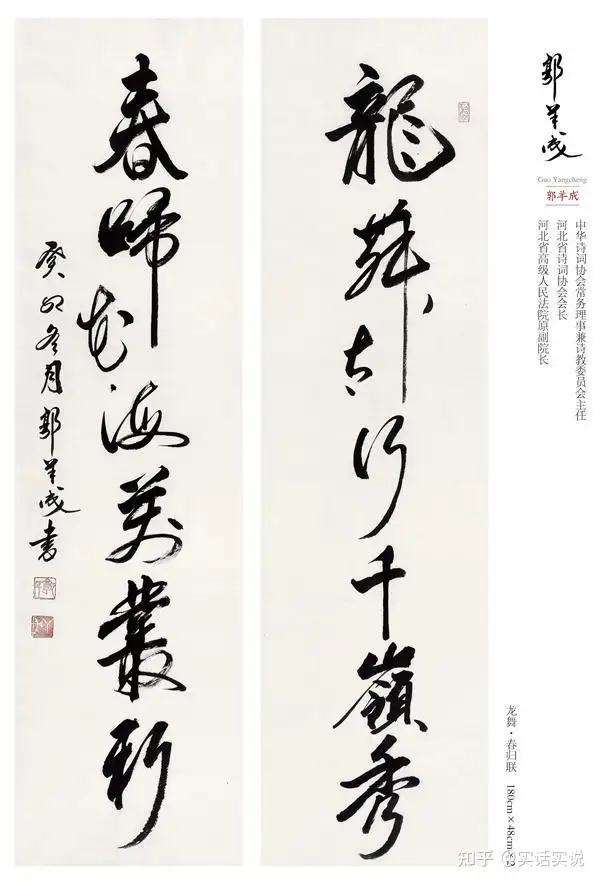 郭羊成
Guo Yangcheng
郭羊成
中华诗词协会常务理事兼诗教委员会主任
河北省诗词协会会长
河北省高级人民法院原副院长
龍舞太行千嶺秀
春歸花海萬叢新
癸卯冬月郭羊成書
龙舞·春归联 180cm×48cm×2
知乎 @实话实说